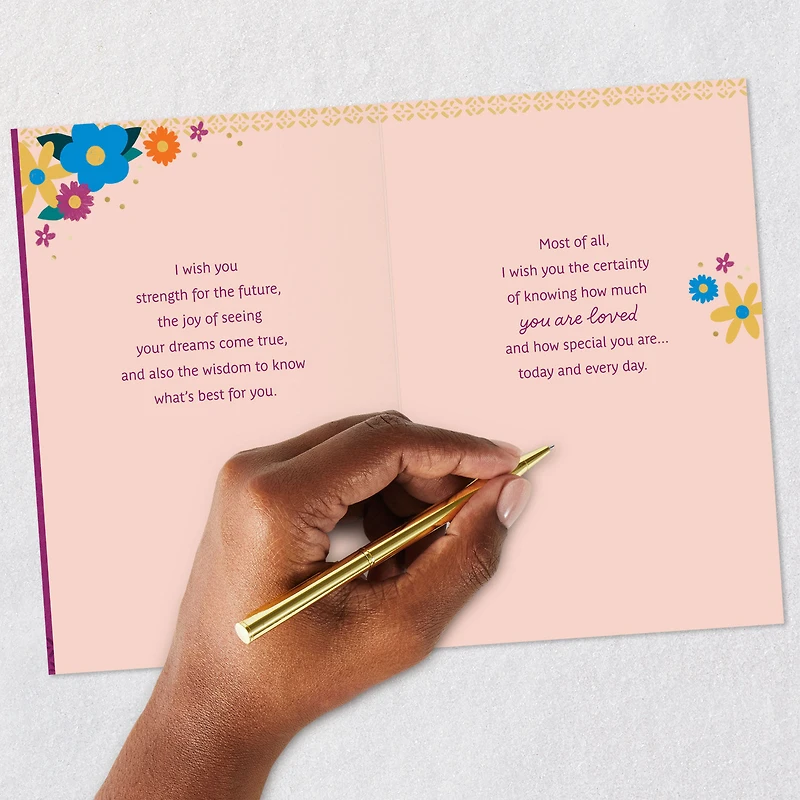 I wish you
strength for the future,
the joy of seeing
your dreams come true,
and also the wisdom to know
what's best for you.
Most of all,
I wish you the certainty
of knowing how much
you are loved
and how special you are...
today and every day.